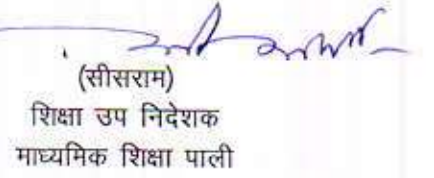 (सीसराम)
शिक्षा उप निदेशक
माध्यमिक शिक्षा पाली